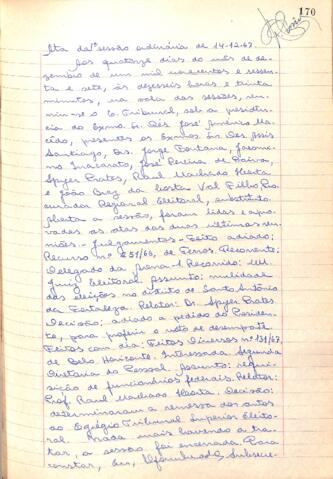 170
Ata da 1ª sessão ordinária de 14-12-67.
Aos quatorze dias do mês de de-
zembro de um mil novecentos e sessen-
ta e sete, às dezesseis horas e trinta
minutos, na sala das sessões, reu-
niu-se o E. Tribunal, sob a presidên-
cia do Exmo. Sr. Des. José Américo Ma-
cêdo, presentes os Exmos. Srs. Des. Assis
Santiago, Drs. Jorge Fontana, Jacomi-
no Inacarato, José Pereira de Paiva,
Spyer Prates, Raul Machado Horta
e João Braz da Costa Val Filho, Pro-
curador Regional Eleitoral, substituto.
Aberta a sessão, foram lidas e apro-
vadas as atas das duas últimas reu-
niões - Julgamentos - Feito adiado:
Recurso nº 251/66, de Ferros. Recorrente:
Delegado da Arena-1. Recorrido: MM.
Juiz Eleitoral. Assunto: nulidade
das eleições no distrito de Santo Antônio
da Fortaleza. Relator: Dr. Spyer Prates.
Decisão: adiado a pedido do Presiden-
te, para proferir o voto de desempate.
Feitos com dia: Feitos Diversos nº 131/67,
de Belo Horizonte. Interessada: Segunda
Diretoria do Pessoal. Assunto: requi-
sição de funcionários federais. Relator:
Prof. Raul Machado Horta. Decisão:
determinaram a remessa dos autos
ao Egrégio Tribunal Superior Eleito-
ral. Nada mais havendo a tra-
tar, a sessão foi encerrada. Para
constar, eu, subscre-